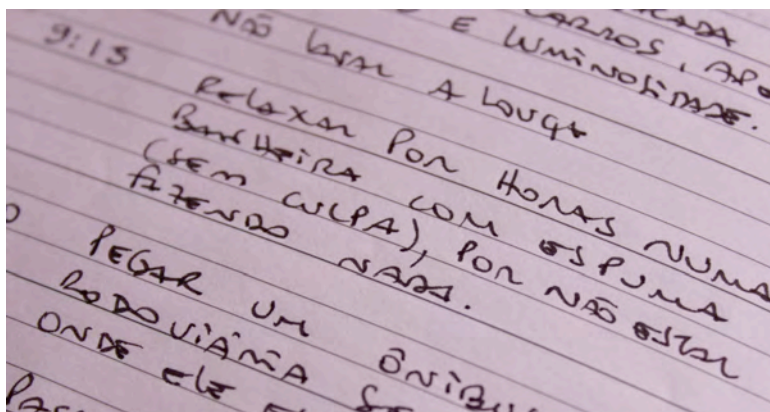 CARROS, APO
E LUMINOSIDADE.
NÃO LAVAR A LOUÇA
9:15 RELAXAR POR HORAS NUMA
BANHEIRA COM ESPUMA
(SEM CULPA), POR NÃO ESTAR
FAZENDO NADA.
PEGAR UM ÔNIBU
RODOVIÁRIA
ONDE ELE